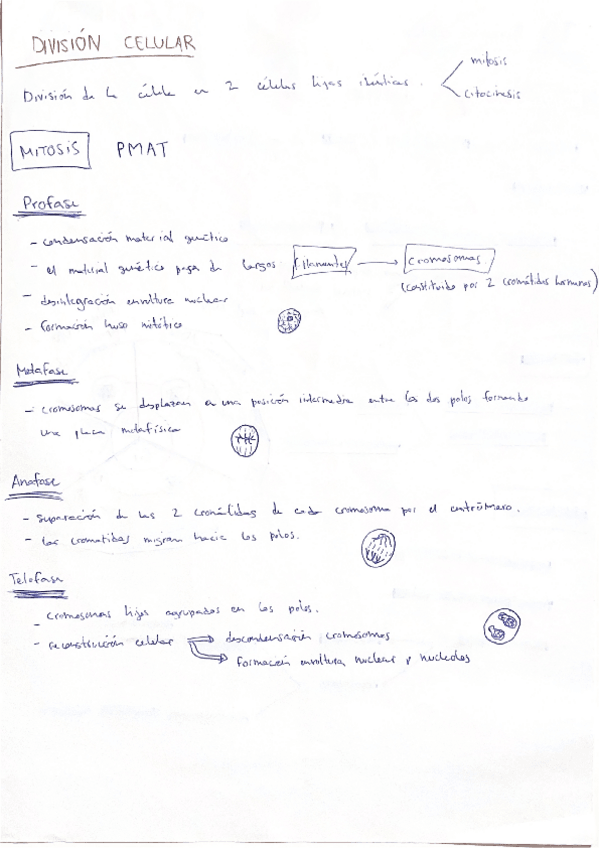 DIVISIÓN CELULAR
División de la célula en 2 células hijas idénticas.
mitosis
citocinesis
MITOSIS PMAT
Profase
- condensación material genético
- el material genético pasa de largos filamentos → cromosomas
(constituido por 2 cromátidas hermanas)
- desintegración envoltura nuclear
- formación huso mitótico
Metafase
- cromosomas se desplazan a una posición intermedia entre los dos polos formando
una placa metafísica
Anafase
- separación de las 2 cromátidas de cada cromosoma por el centrómero.
- las cromatidas migran hacia los polos.
Telofase
- cromosomas hijos agrupados en los polos.
- reconstrucción celular ⇒ descondensación cromosomas
⇒ formación envoltura nuclear y nucleolos